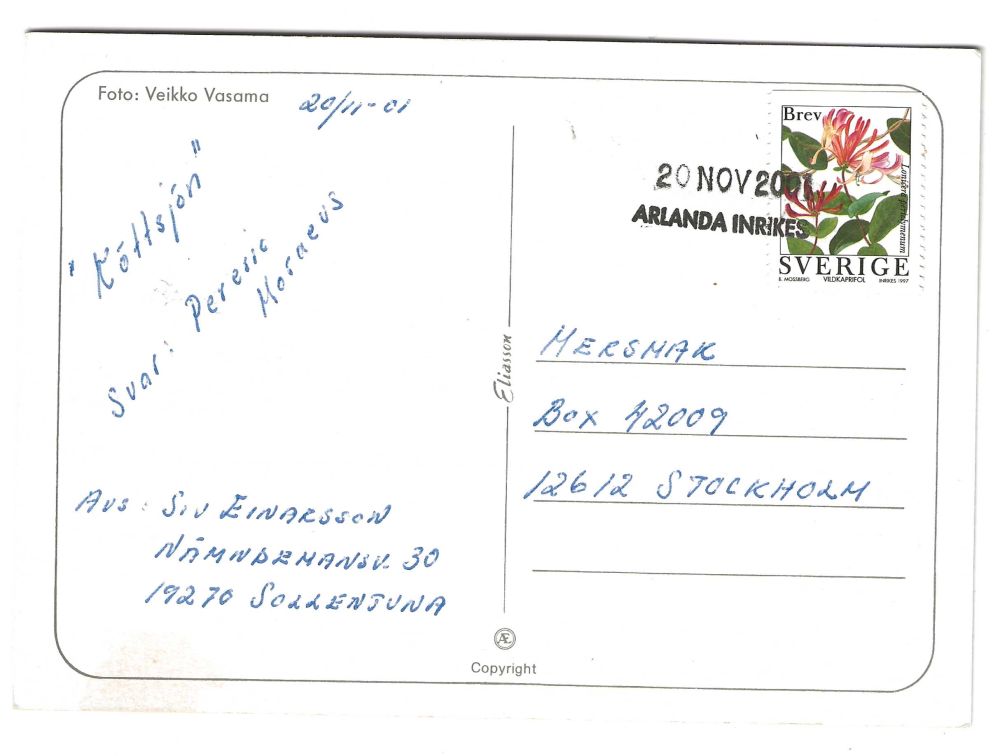 Foto: Veikko Vasama
20/11-01
"Köttsjön"
Svar: Pereric
Moraeus
Avs: Siv Einarsson
Nämndemansv. 30
19270 Sollentuna
Eliasson
Æ
Copyright
20 NOV 2001
ARLANDA INRIKES
Brev
Lonicera periclymenum
SVERIGE
B. MOSSBERG VILDKAPRIFOL INRIKES 1997
MERSMAK
BOX 42009
12612 STOCKHOLM